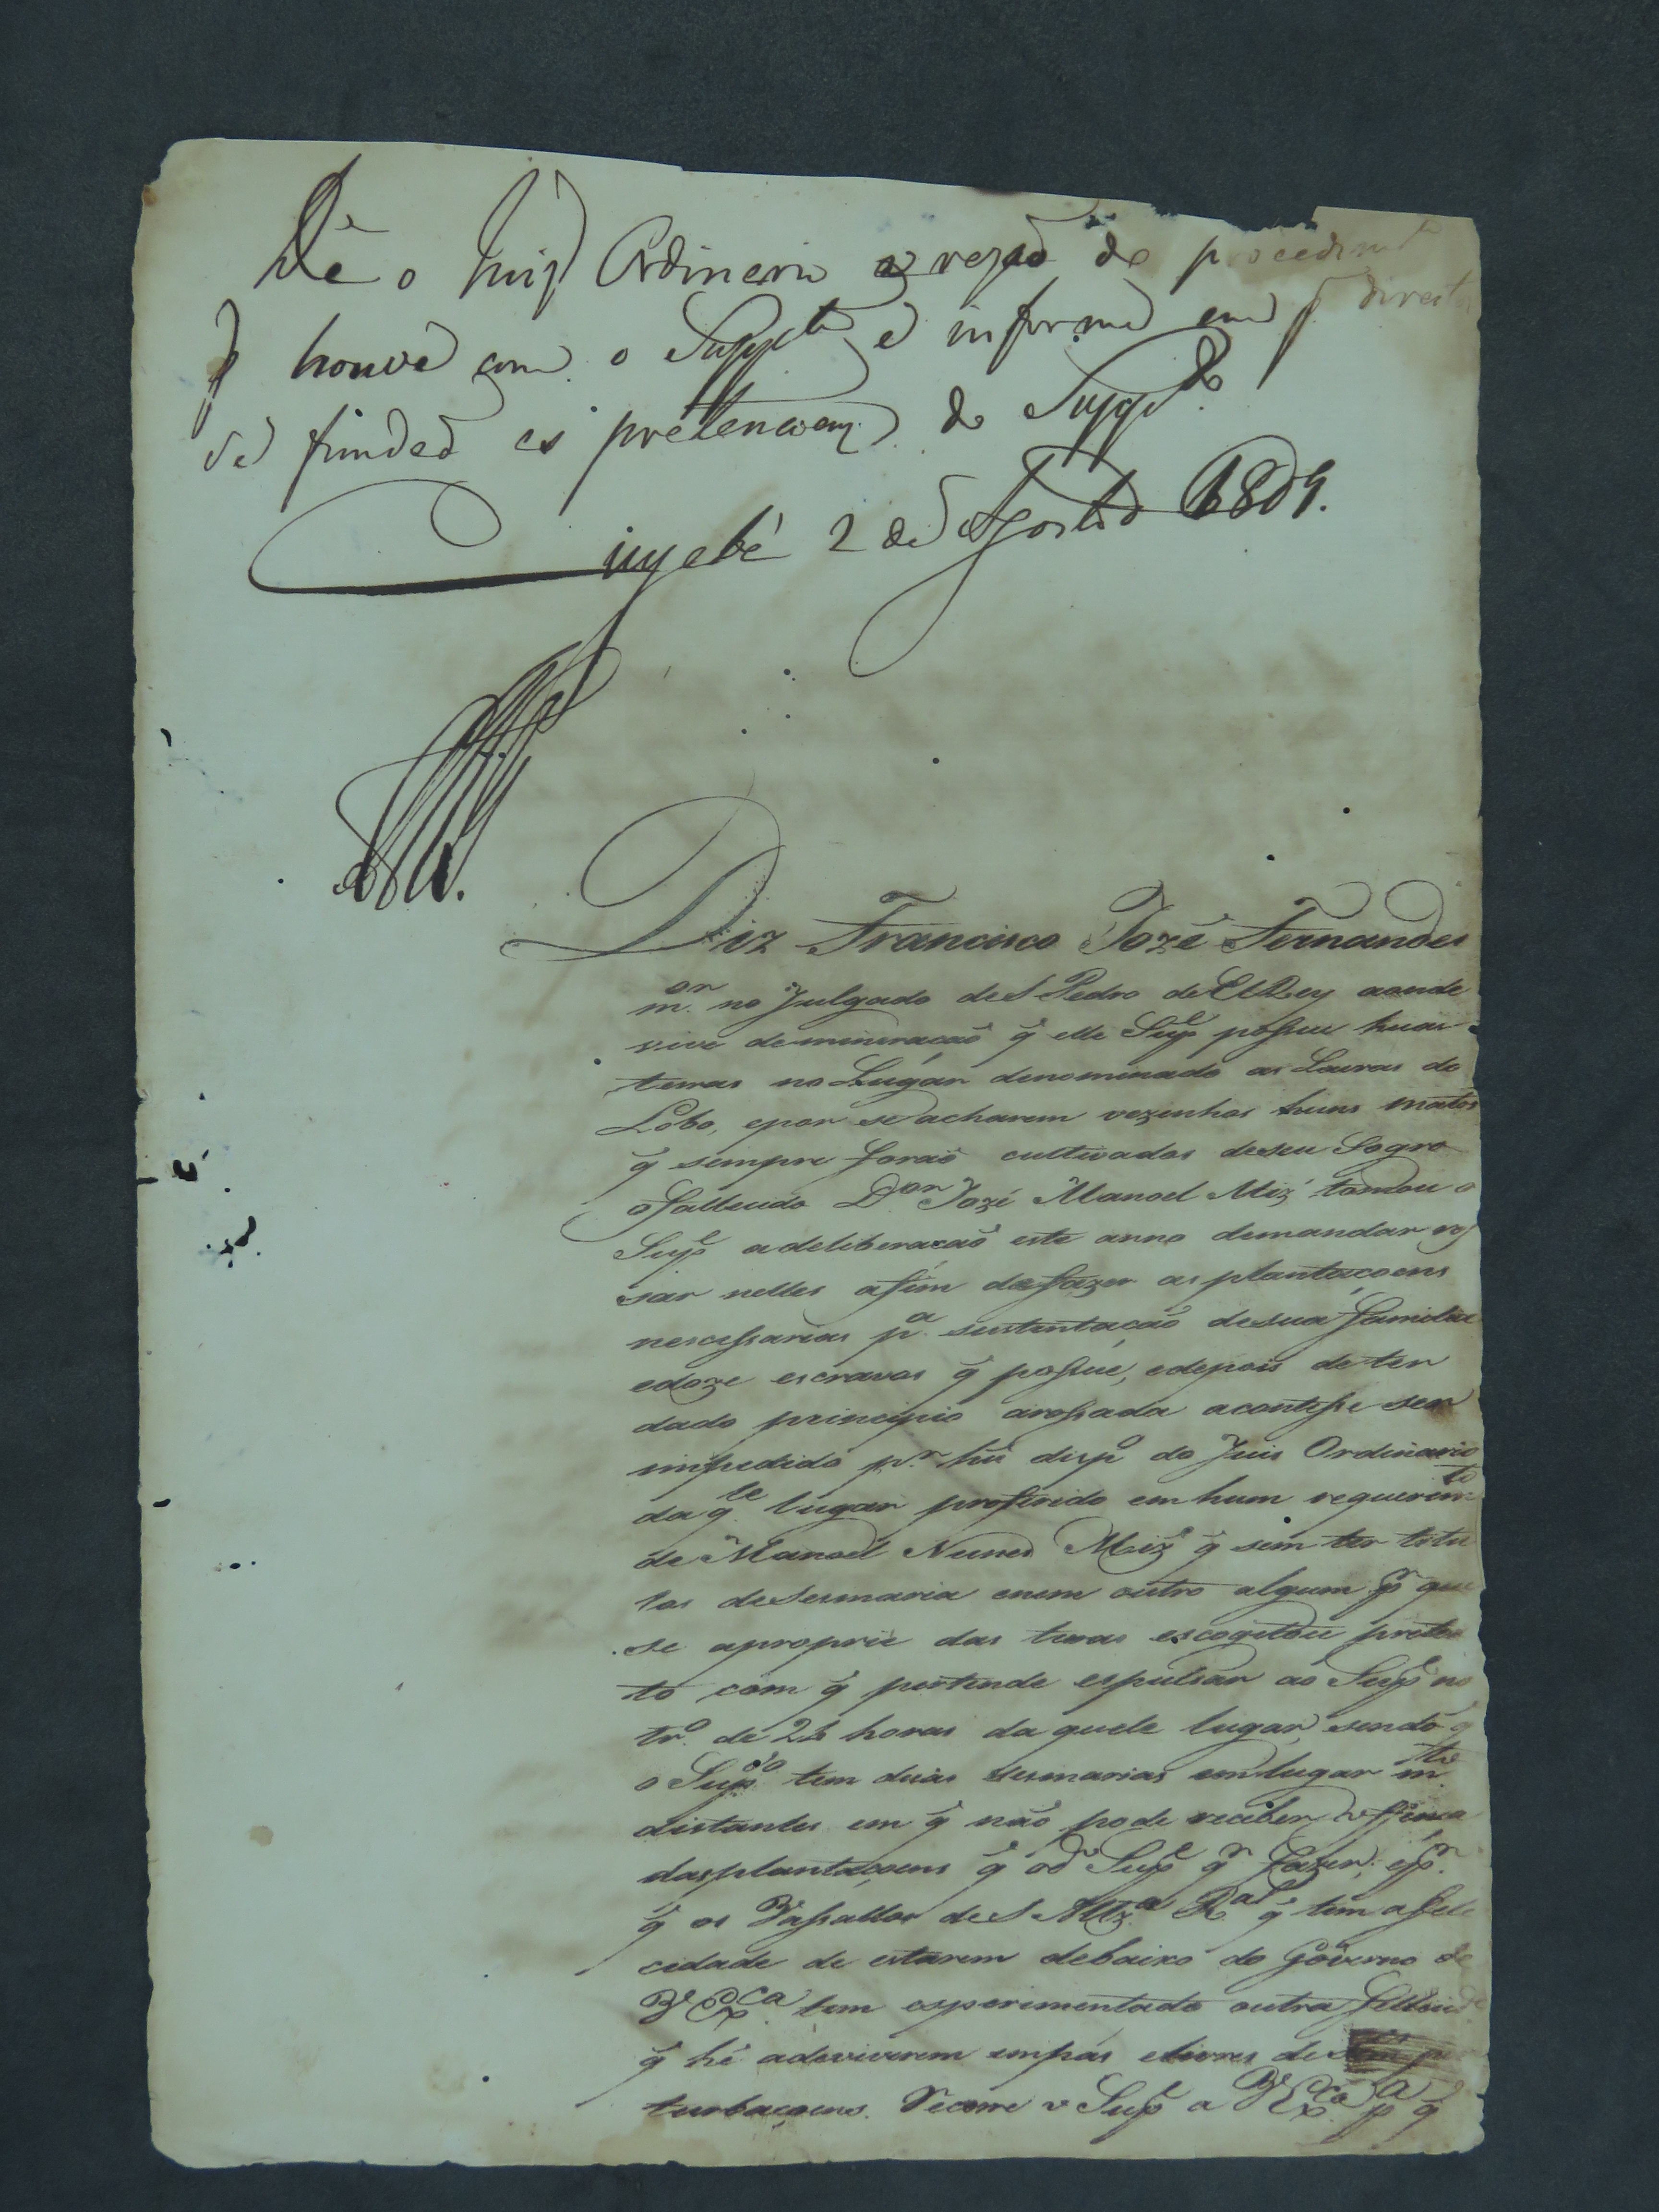 Dê o Juiz Ordinario a rezaõ do procedimto
q̃ houve com o Suppte, e informe em q̃ direito
se fundaõ as pretençoens do Suppdo
Cuyabá 2 de Agosto 1809.
Diz Francisco Jozé Fernandes
mor no Julgado de S Pedro de ElRey aonde
vive de mineraçaõ q̃ elle Supe possue huas
terras no Lugar denominado as Lavras do
Lobo, epor se acharem vezinhos huns matos
q̃ sempre foraõ cultivados deseu Sogro
o fallecido Dor Jozé Manoel Miz' tomou o
Supe adeliberaçaõ este anno demandar ros
sar nelles afim defazer as plantaçoens
nescessarias pa sustentaçaõ desua familia
edoze escravos q̃ possue, edepois de ter
dado principio arossada acontesse ser
impedido pr hũ dispo do Juis Ordinario
da qle lugar proferido em hum requerimto
de Manoel Nunes Miz' q̃ sem ter titu
los desesmaria enem outro algum pr que
se aproprie das terras escogitou pretex
to com q̃ pertende espulsar ao Supe no
tro de 24 horas da quele lugar, sendo q̃
o Supdo tem duas sesmarias em lugar mto
distantes em q̃ não pode receber offença
dasplantaçoens q̃ od.o Supe qr fazer; epr
q̃ os Vassallos de S Altza Ral q̃ tem afeli
cidade de estarem debaixo do Governo de
V Exca tem esperimentado outra fellicide
q̃ hé adeviverem empás elivres de per
turbaçoens. Recorre o Supe a V Exca pa q̃